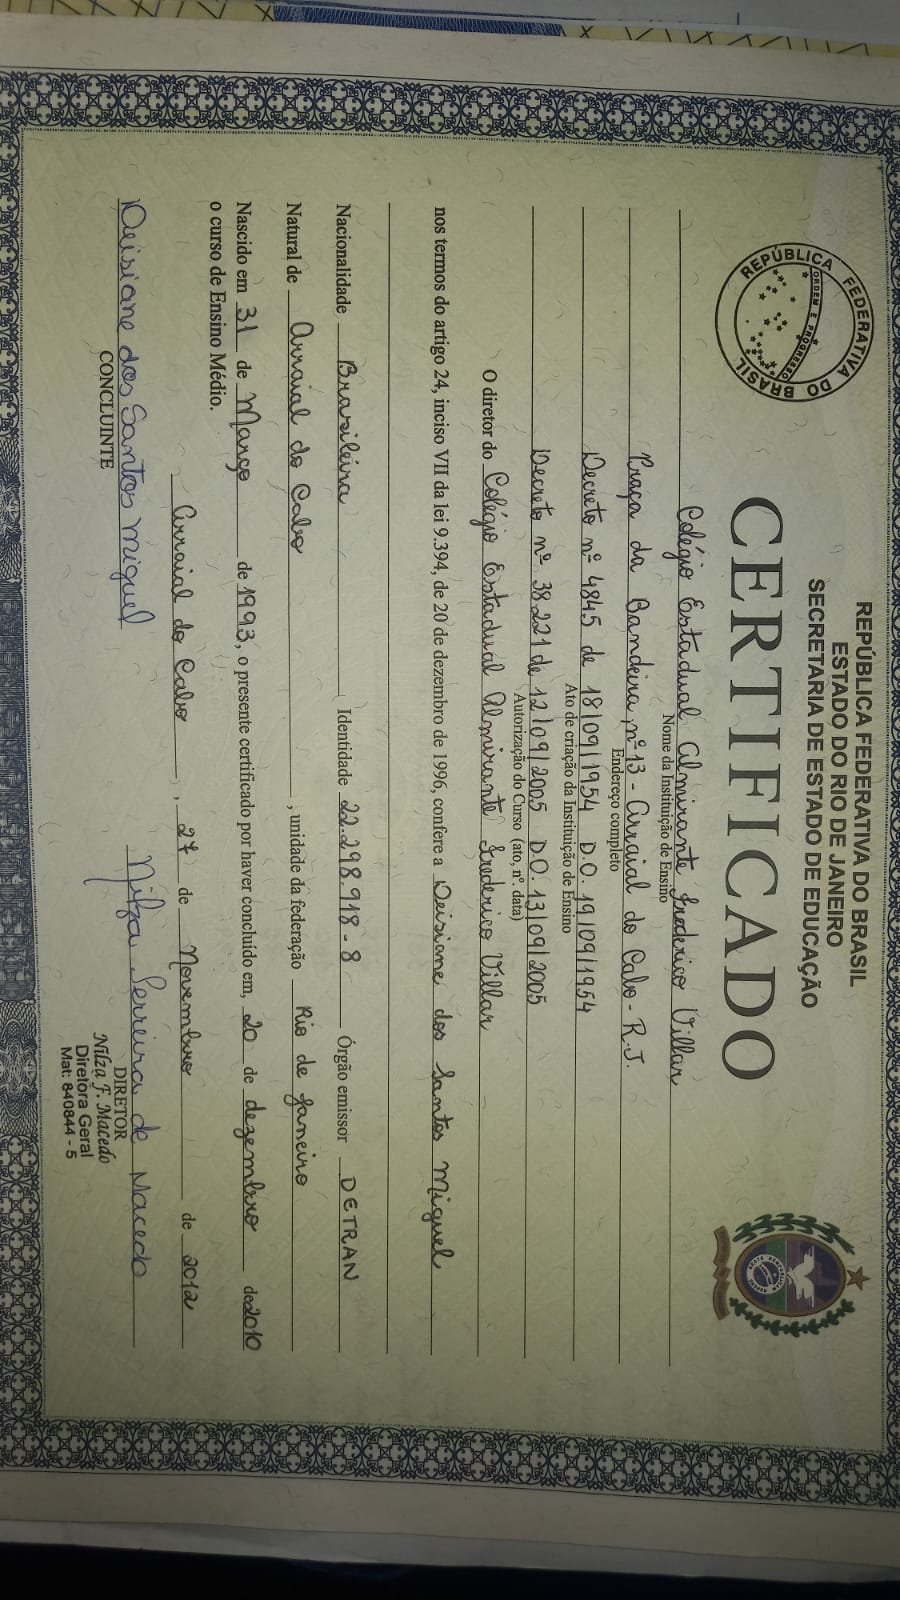 REPÚBLICA FEDERATIVA DO BRASIL
ESTADO DO RIO DE JANEIRO
SECRETARIA DE ESTADO DE EDUCAÇÃO
REPÚBLICA FEDERATIVA DO BRASIL
ORDEM E PROGRESSO
CERTIFICADO
Colégio Estadual Almirante Frederico Villar
Nome da Instituição de Ensino
Praça da Bandeira, nº 13 - Arraial do Cabo - R.J.
Endereço completo
Decreto nº 4845 de 18/09/1954 D.O. 19/09/1954
Ato de criação da Instituição de Ensino
Decreto nº 38.221 de 12/09/2005 D.O. 13/09/2005
Autorização do Curso (ato, nº. data)
O diretor do Colégio Estadual Almirante Frederico Villar
nos termos do artigo 24, inciso VII da lei 9.394, de 20 de dezembro de 1996, confere a Deisiane dos Santos Miguel
Nacionalidade Brasileira Identidade 22.298.918-8 Órgão emissor DETRAN
Natural de Arraial do Cabo, unidade da federação Rio de Janeiro
Nascido em 31 de Março de 1993, o presente certificado por haver concluído em, 20 de dezembro de 2010
o curso de Ensino Médio.
Arraial do Cabo, 27 de Novembro de 2012
Deisiane dos Santos Miguel
CONCLUINTE
Nilza Ferreira de Macedo
DIRETOR
Nilza F. Macedo
Diretora Geral
Mat: 840844-5